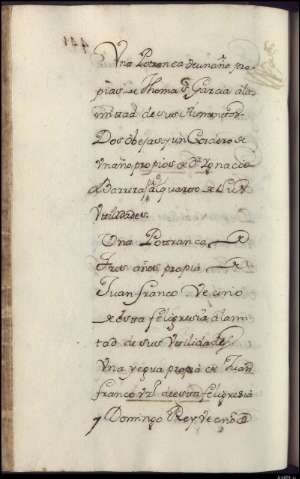 Vna Potranca de un año pro
pias de Thoma Garcia a la
mittad de sus Aumentos
Dos obejas y un Cordero de
un año propios de Dn Ignacio
Barrera al quarto de sus
Vtilidades.
Una Pottranca de
tres años propia de
Juan franco Vecino
de estta feligresia a la mi
tad de sus Vtilidades
Vna yegua propia de Juan
franco Vzo. de estta feligresia
y Domingo Rey Vecino de